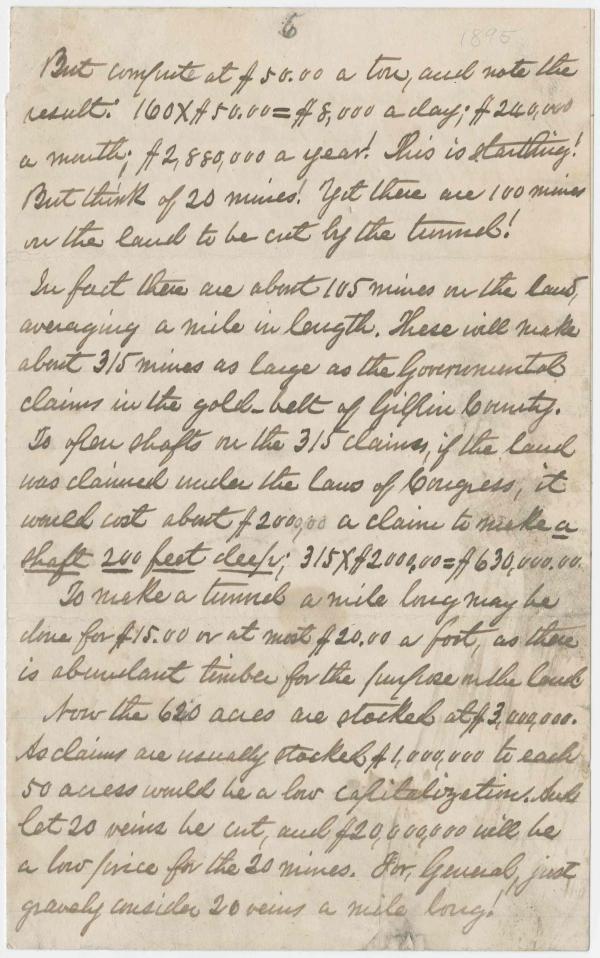 6
1895
But compute at $50.00 a ton, and note the
result: 160X$50.00=$8,000 a day; $240,000
a month; $2,880,000 a year! This is startling!
But think of 20 mines! Yet there are 100 mines
on the land to be cut by the tunnel!
In fact there are about 105 mines on the land,
averaging a mile in length. These will make
about 315 mines as large as the Governmental
claims in the gold-belt of Gilpin County.
To open shafts on the 315 claims, if the land
was claimed under the laws of Congress, it
would cost about $2000,00 a claim to make a
shaft 200 feet deep; 315X$2000,00=$630,000.00.
To make a tunnel a mile long may be
done for $15.00 or at most $20.00 a foot, as there
is abundant timber for the purpose on the land
Now the 620 acres are stocked at $3,000,000.
As claims are usually stocked $1,000,000 to each
50 acress would be a low capitalization. And
let 20 veins be cut, and $20,000,000 will be
a low price for the 20 mines. For, General, just
gravely consider 20 veins a mile long!